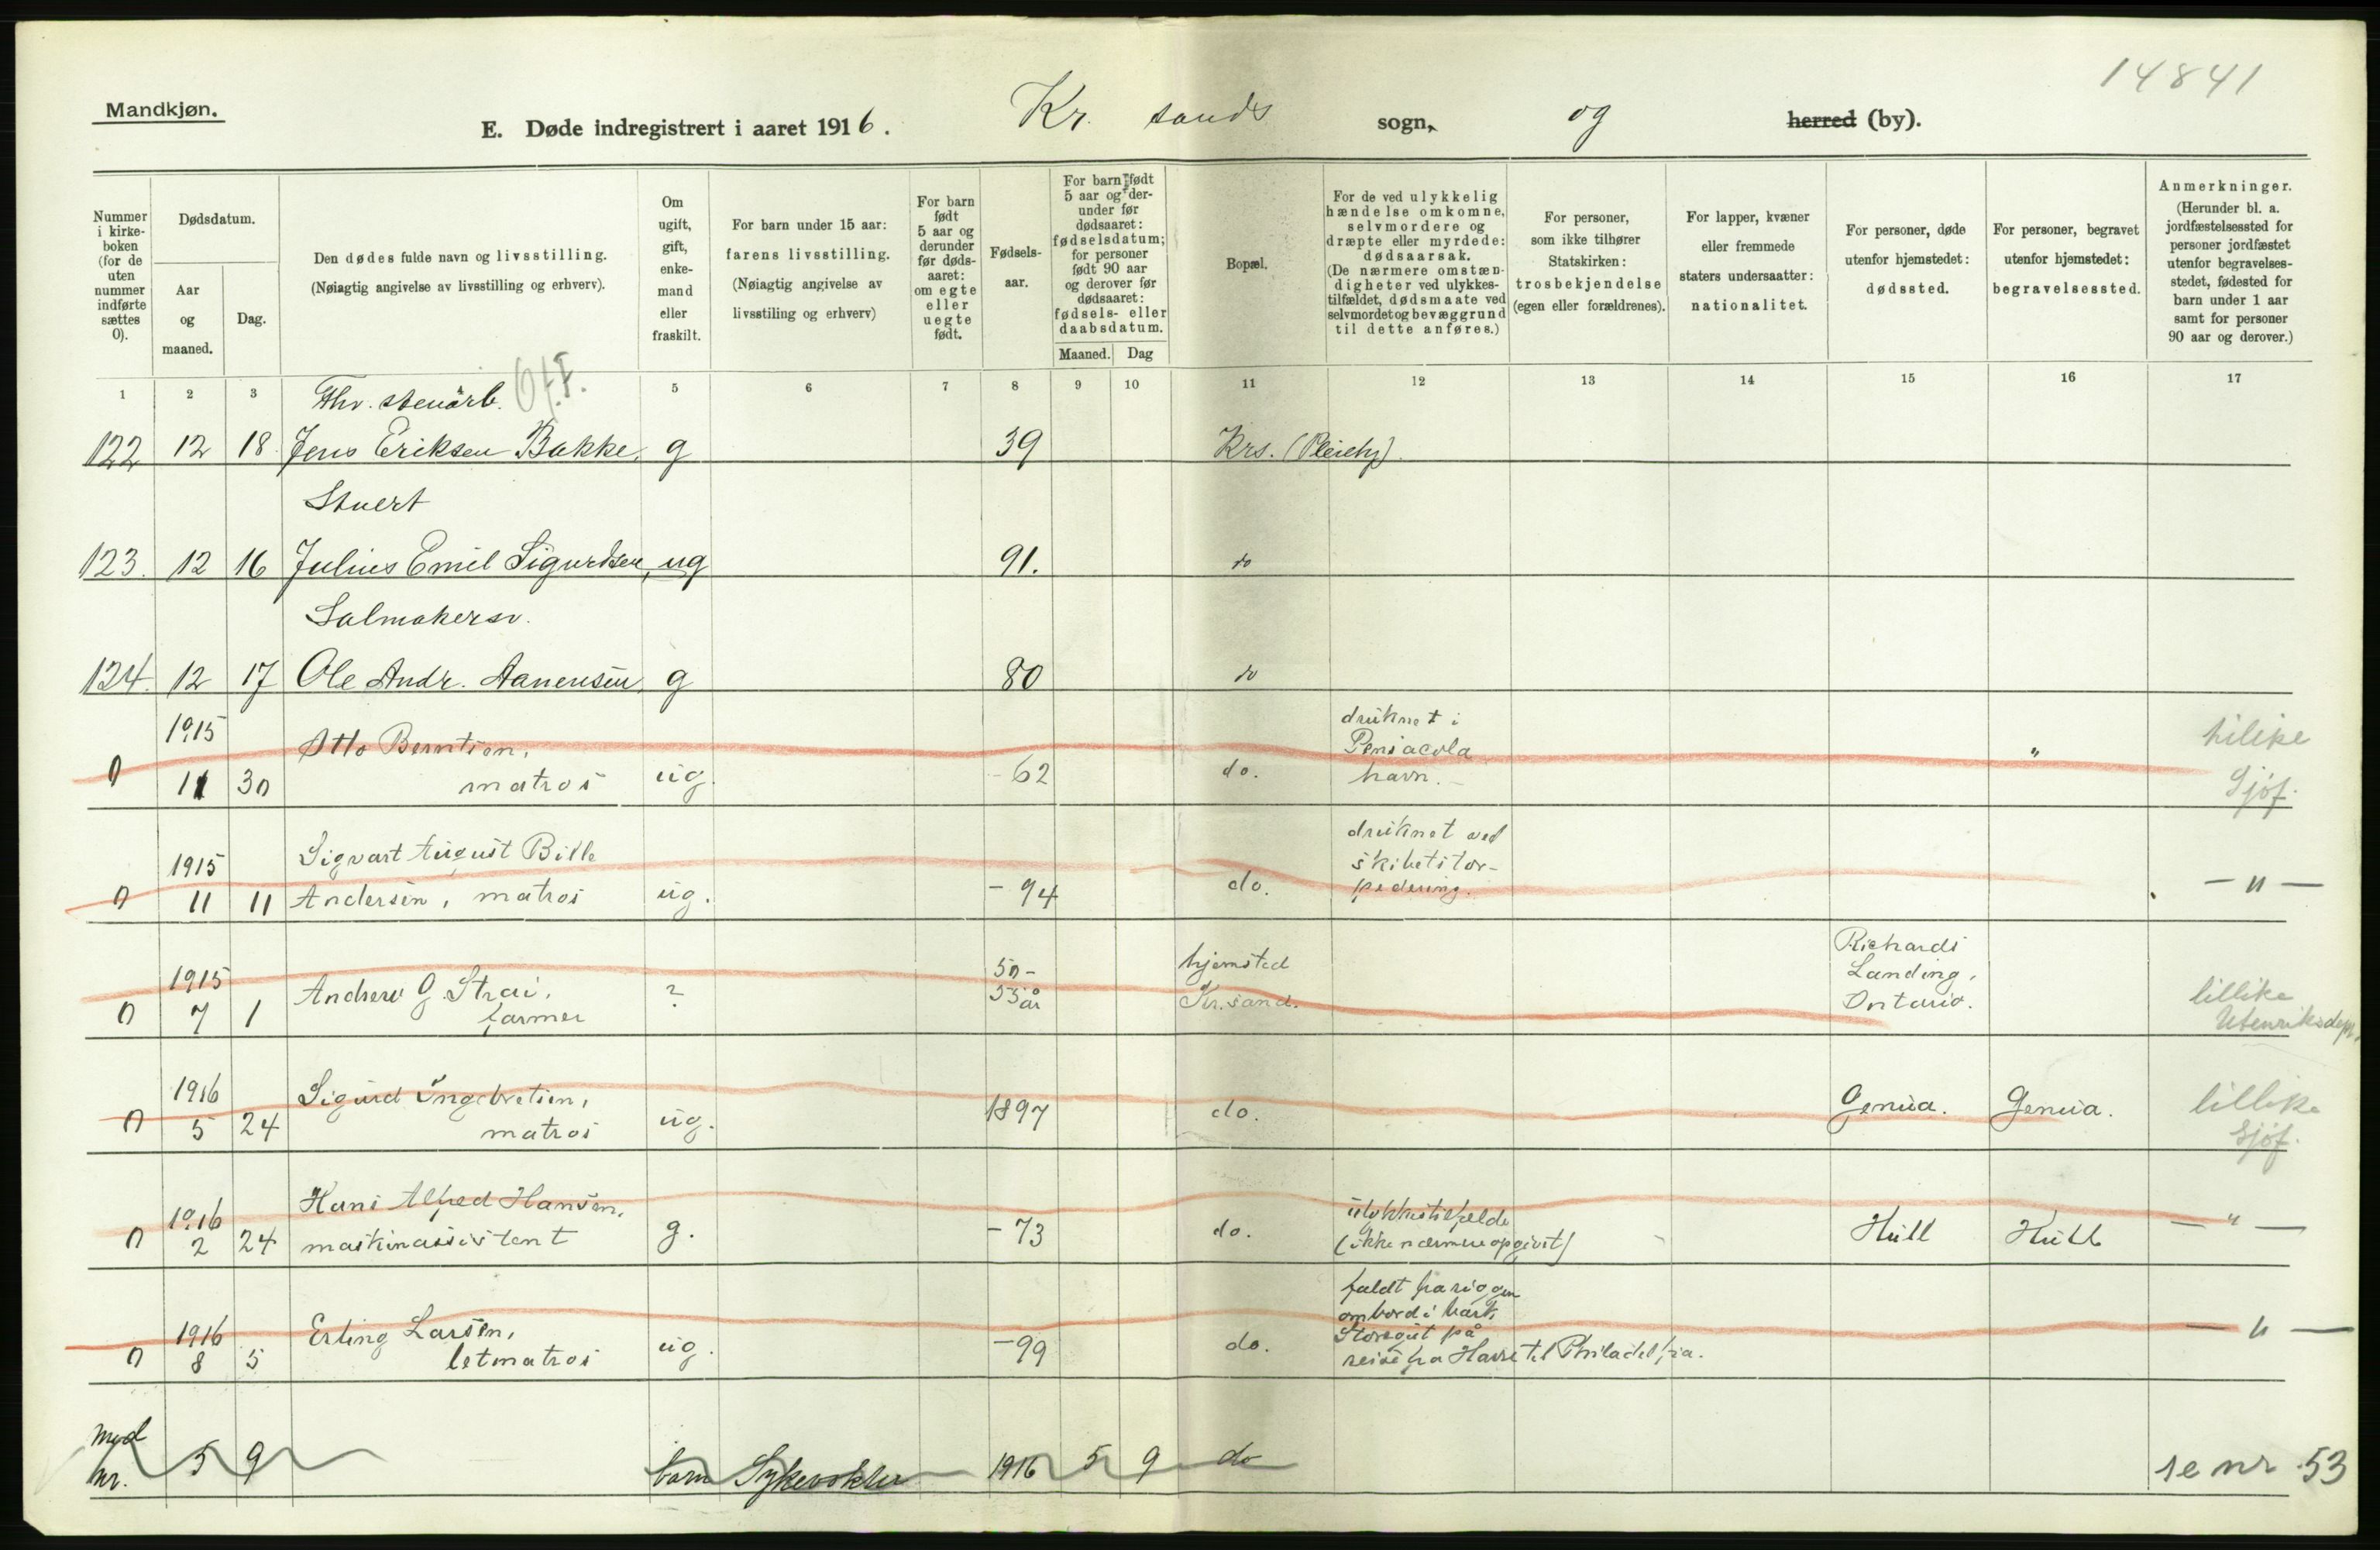 14841
Mandkjøn.
E. Døde indregistrert i aaret 1916. Kr. sands sogn, og herred (by).
Nummer i kirke-boken (for de uten nummer indførte sættes 0).
Dødsdatum.
Aar og maaned.
Dag.
Den dødes fulde navn og livsstilling.
(Nøiagtig angivelse av livsstilling og erhverv).
Om ugift, gift, enke-mand eller fraskilt.
For barn under 15 aar:
farens livsstilling.
(Nøiagtig angivelse av livsstiling og erhverv)
For barn født 5 aar og derunder før døds-aaret: om egte eller uegte født.
Fødsels-aar.
For barn født 5 aar og der-under før dødsaaret: fødselsdatum; for personer født 90 aar og derover før dødsaaret: fødsels- eller daabsdatum.
Maaned. Dag
Bopæl.
For de ved ulykkelig hændelse omkomne, selvmordere og dræpte eller myrdede: dødsaarsak.
(De nærmere omstæn-digheter ved ulykkes-tilfældet, dødsmaate ved selvmordet og bevæggrund til dette anføres.)
For personer, som ikke tilhører Statskirken: trosbekjendelse (egen eller forældrenes).
For lapper, kvæner eller fremmede staters undersaatter: nationalitet.
For personer, døde utenfor hjemstedet: dødssted.
For personer, begravet utenfor hjemstedet: begravelsessted.
Anmerkninger.
(Herunder bl. a. jordfæstelsessted for personer jordfæstet utenfor begravelses-stedet, fødested for barn under 1 aar samt for personer 90 aar og derover.)
1 2 3 5 6 7 8 9 10 11 12 13 14 15 16 17
Fhv. stenarb.
122 12 18 Jens Eriksen Bakke, g 39 Krs. (Pleiehj).
Stuert
123. 12 16 Julius Emil Sigurdsen, ug 91. do
Salmakersv.
124. 12 17 Ole Andr. Aanensen, g 80 do
1915 Otto Berntsen, druknet i Pensacola
0 11 30 matros ug. -62 do. havn. - " lilike Sjøf.
1915 Sigvart August Bille druknet ved skibets tor-
0 11 11 Andersen, matros ug. -94 do. pedering. - " -
1915 Andrew G. Strai, 50- hjemsted Richards Landing,
0 7 1 farmer ? 55 år Kr.sand. Ontario. lillike Utenriksdep.
1916 Sigurd Ingebretsen,
0 5 24 matros ug. 1897 do. Genua. Genua. lillike Sjøf.
1916 Hans Alfred Hansen, ulykkestilfelde
0 2 24 maskinassistent g. -73 do. (ikke nærmere opgivet) Hull Hull - " -
faldt fra riggen
ombord i bark.
1916 Erling Larsen, Storegut på
0 8 5 letmatros ug. -99 do. reise fra Havre til Philadelfia. - " -
nr. 5 9 barn 1916 5 9 do se nr 53